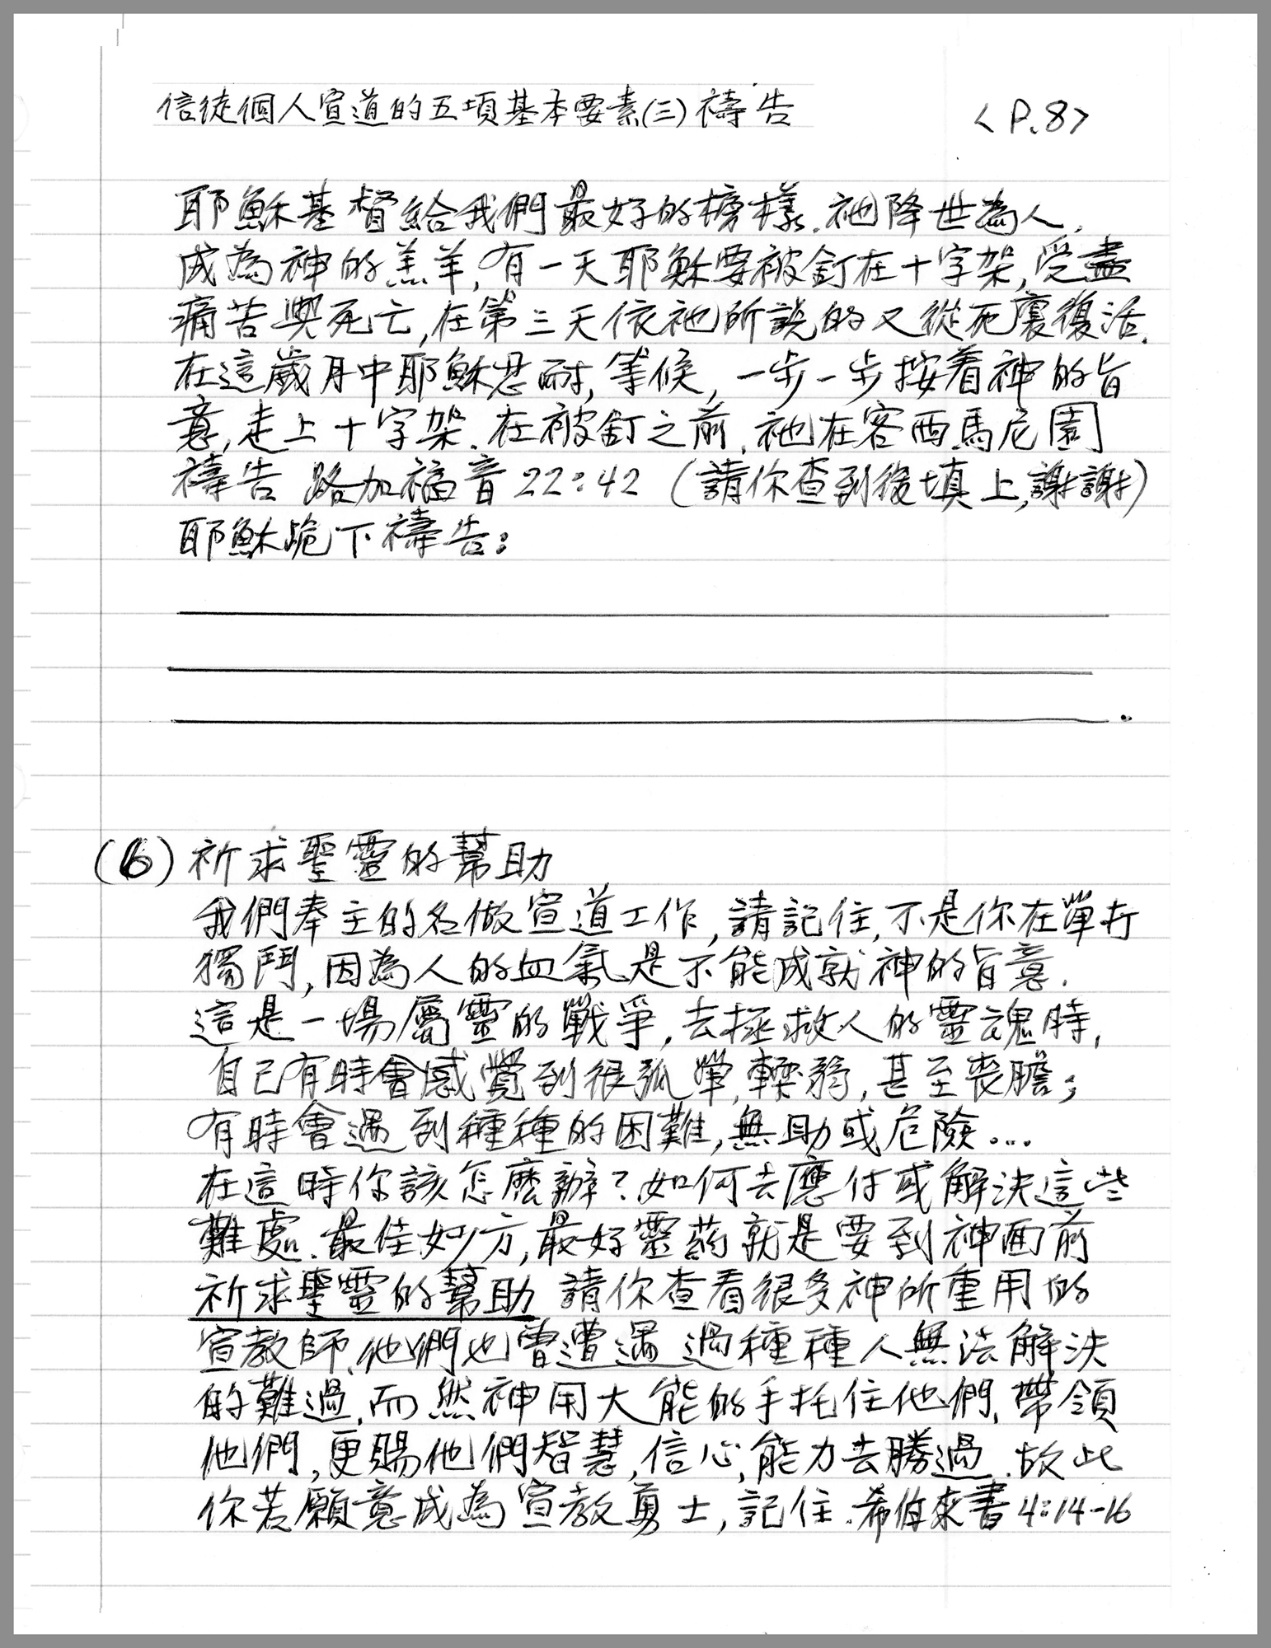 信徒個人宣道的五項基本要素(三)禱告
<P.8>
耶穌基督給我們最好的榜樣.祂降世為人,
成為神的羔羊,有一天耶穌要被釘在十字架,受盡
痛苦與死亡,在第三天依祂所說的又從死裏復活.
在這歲月中耶穌忍耐,等候,一步一步按着神的旨
意,走上十字架.在被釘之前,祂在客西馬尼園
禱告 路加福音22:42 (請你查到後填上,謝謝)
耶穌跪下禱告:
(6) 祈求聖靈的幫助
我們奉主的名做宣道工作,請記住,不是你在單打
獨鬥,因為人的血氣是不能成就神的旨意.
這是一場屬靈的戰爭,去拯救人的靈魂時,
自己有時會感覺到很孤單,輭弱,甚至喪膽;
有時會遇到種種的困難,無助或危險...
在這時你該怎麼辦?如何去應付或解決這些
難處.最佳妙方,最好靈葯就是要到神面前
祈求聖靈的幫助 請你查看很多神所重用的
宣教師,他們也曾遭遇過種種人無法解決
的難過,而然神用大能的手托住他們,帶領
他們,更賜他們智慧,信心,能力去勝過.故此
你若願意成為宣教勇士,記住.希伯來書4:14-16